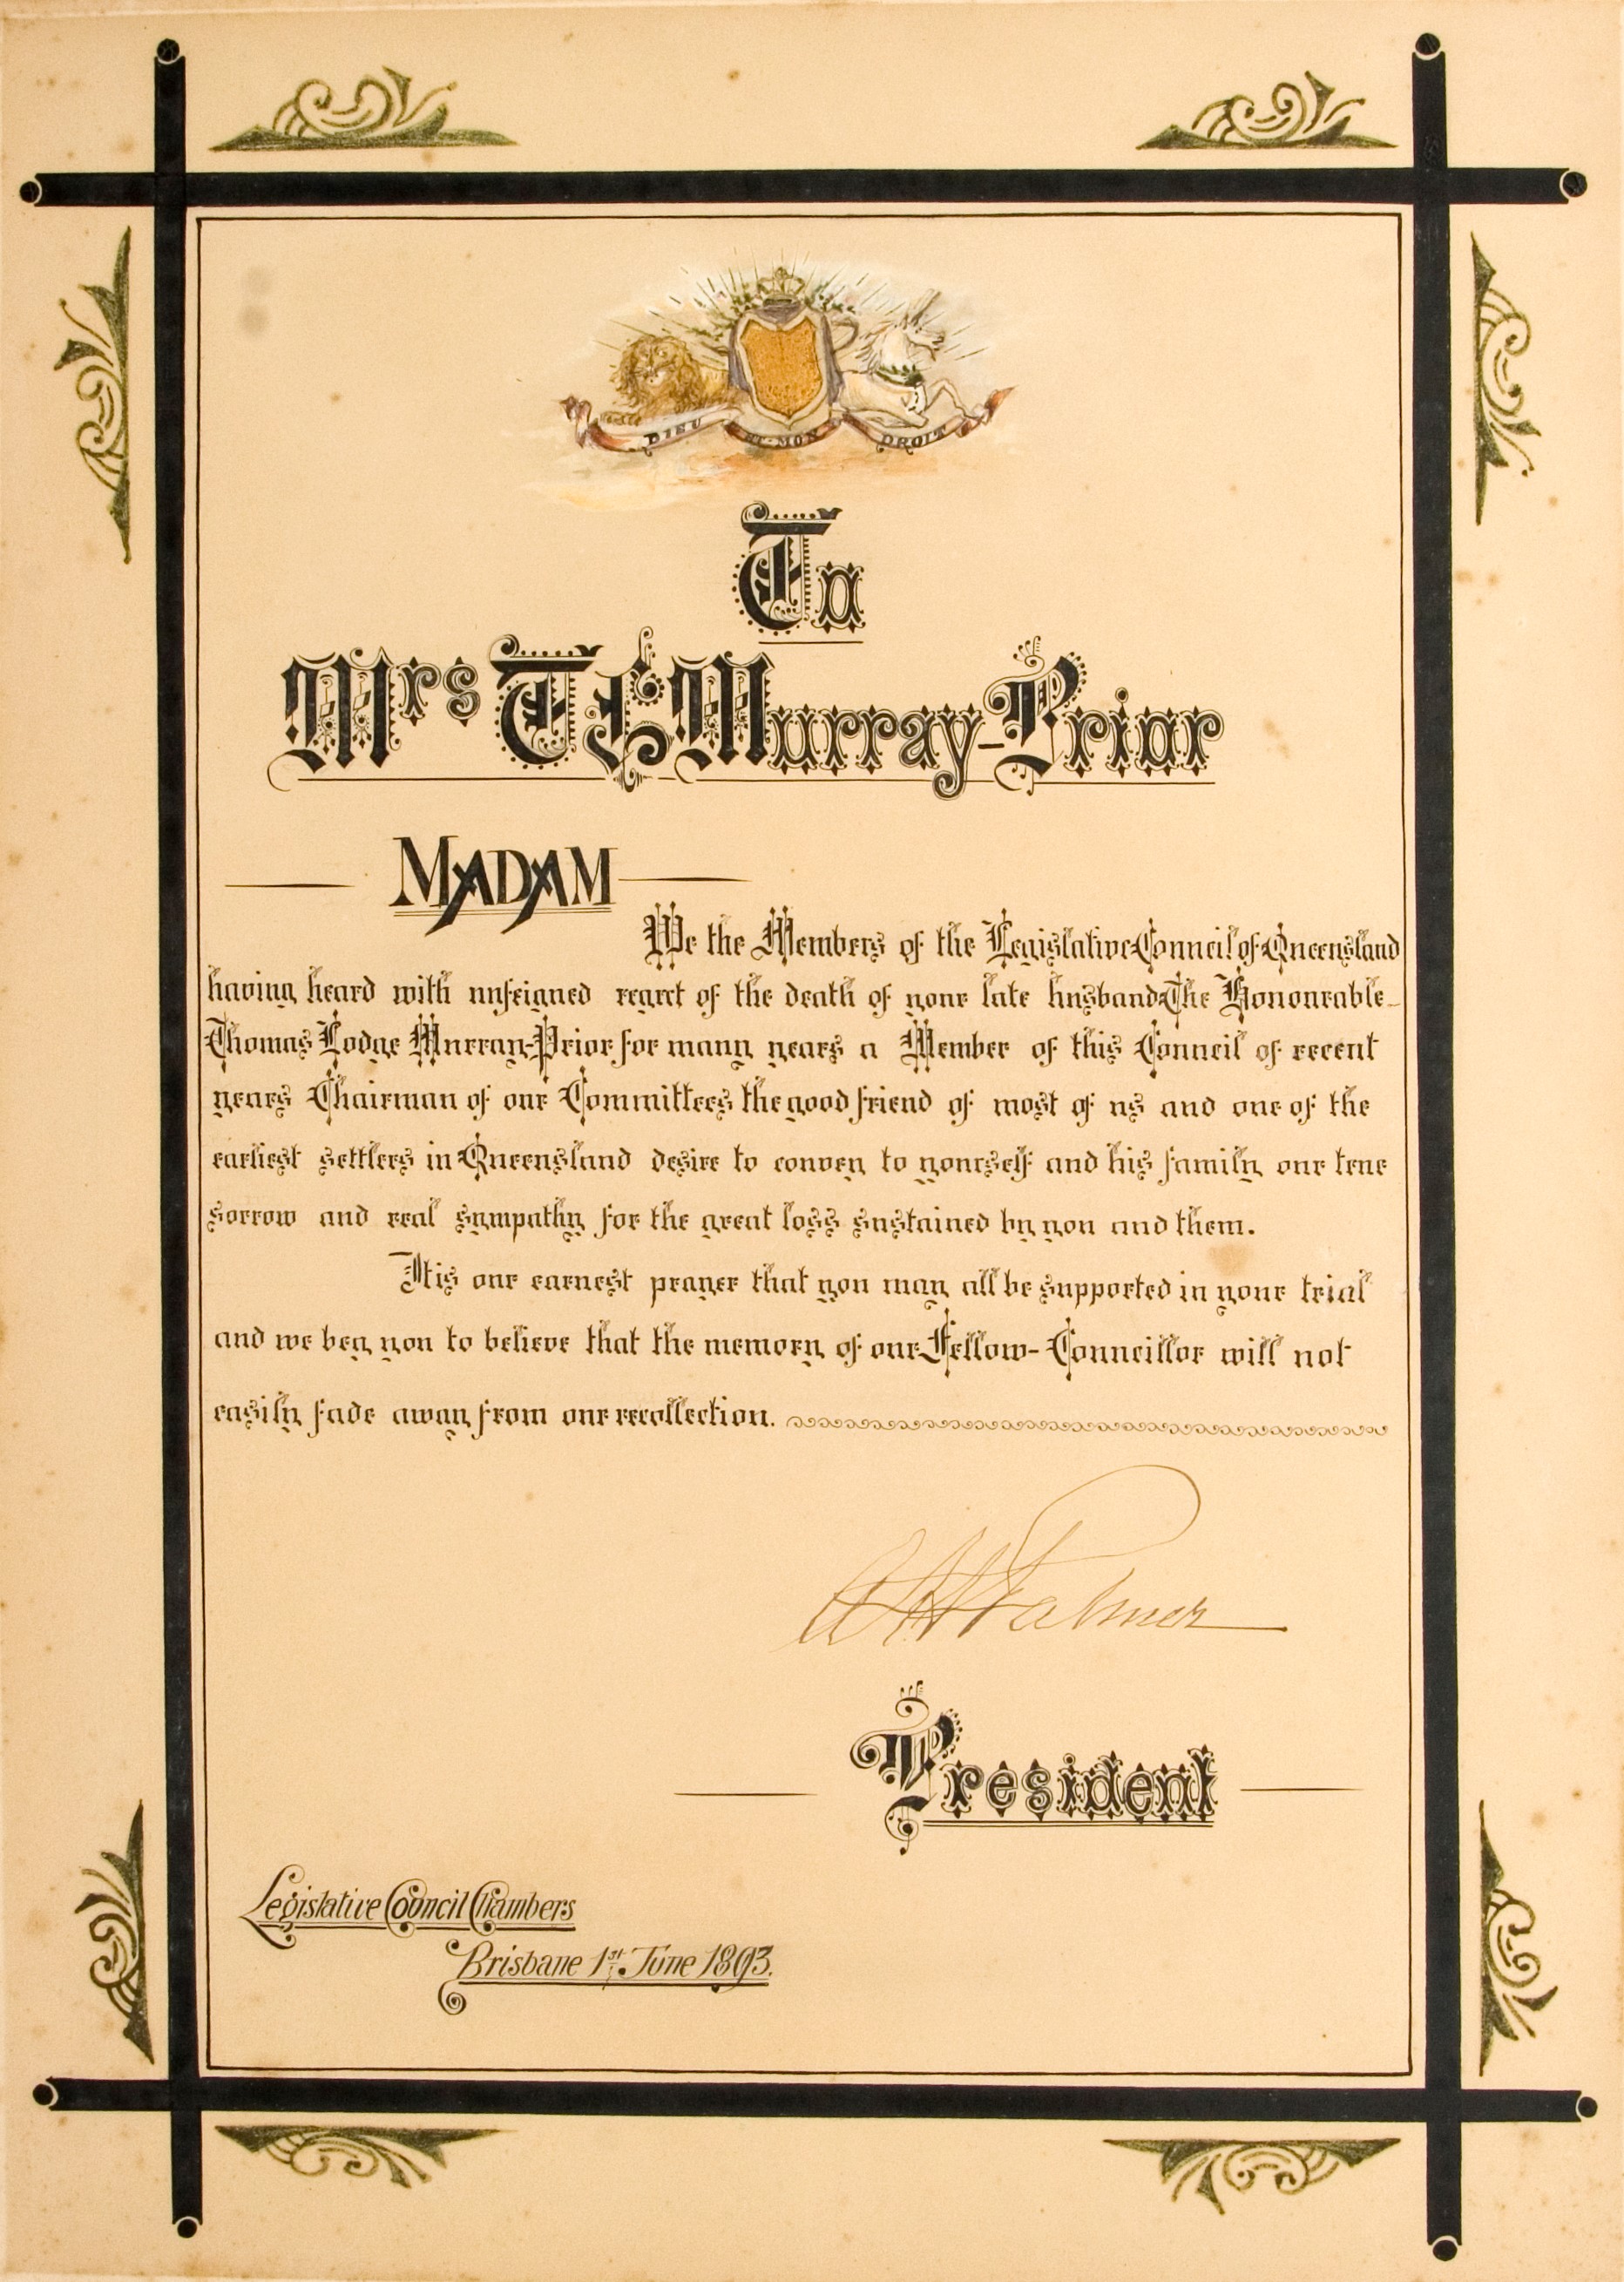 DIEU ET·MON DROIT
To
Mrs T L Murray-Prior
MADAM
We the Members of the Legislative Council of Queensland
having heard with unfeigned regret of the death of your late husband The Honourable
Thomas Lodge Murray-Prior for many years a Member of this Council of recent
years Chairman of our Committees the good friend of most of us and one of the
earliest settlers in Queensland desire to convey to yourself and his family our true
sorrow and real sympathy for the great loss sustained by you and them.
It is our earnest prayer that you may all be supported in your trial
and we beg you to believe that the memory of our Fellow-Councillor will not
easily fade away from our recollection.
A H Palmer
President
Legislative Council Chambers
Brisbane 1st June 1893.